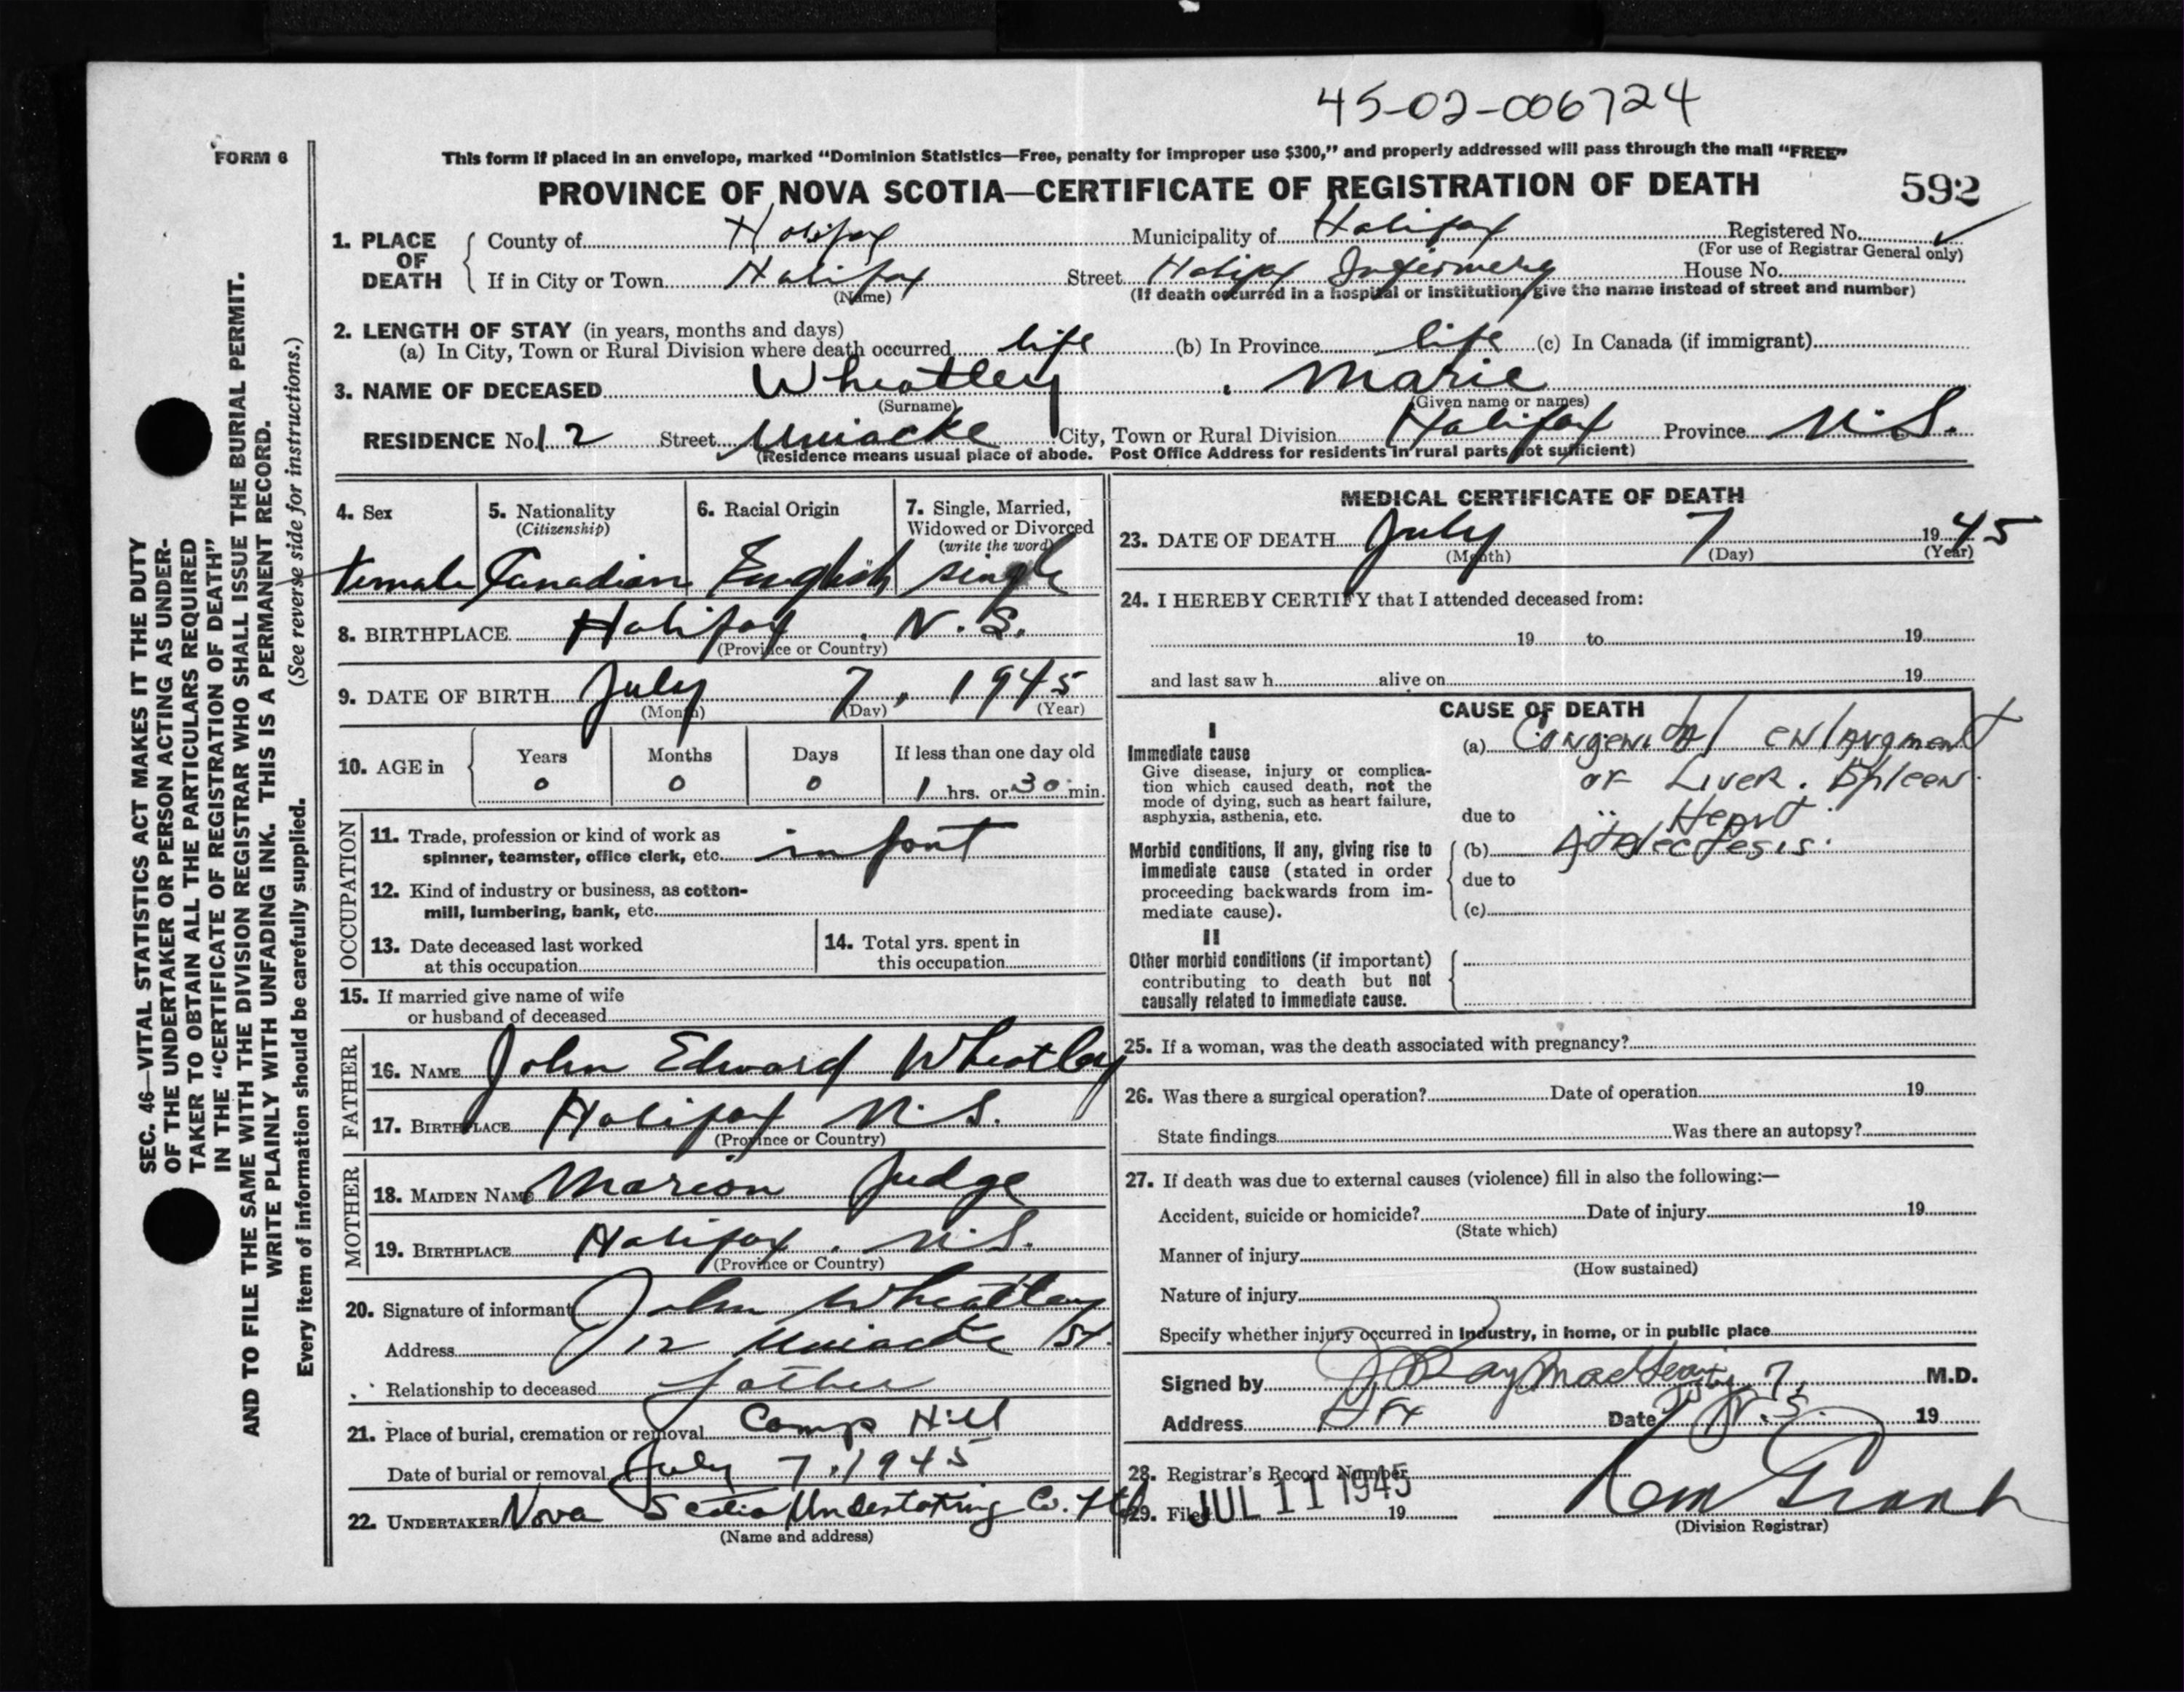 45-02-006724
FORM 6
This form if placed in an envelope, marked “Dominion Statistics—Free, penalty for improper use $300,” and properly addressed will pass through the mail “FREE”
PROVINCE OF NOVA SCOTIA—CERTIFICATE OF REGISTRATION OF DEATH
592
1. PLACE OF DEATH
County of Halifax Municipality of Halifax Registered No.
(For use of Registrar General only)
If in City or Town Halifax Street Halifax Infirmery House No.
(Name) (If death occurred in a hospital or institution, give the name instead of street and number)
2. LENGTH OF STAY (in years, months and days)
(a) In City, Town or Rural Division where death occurred life (b) In Province life (c) In Canada (if immigrant)
3. NAME OF DECEASED Wheatley, Marie
(Surname) (Given name or names)
RESIDENCE No. 12 Street Uniacke City, Town or Rural Division Halifax Province N.S.
(Residence means usual place of abode. Post Office Address for residents in rural parts not sufficient)
4. Sex
female
5. Nationality
(Citizenship)
Canadian
6. Racial Origin
English
7. Single, Married,
Widowed or Divorced
(write the word)
single
8. BIRTHPLACE Halifax, N.S.
(Province or Country)
9. DATE OF BIRTH July 7, 1945
(Month) (Day) (Year)
10. AGE in
Years Months Days If less than one day old
0 0 0 1 hrs. or 30 min.
OCCUPATION
11. Trade, profession or kind of work as
spinner, teamster, office clerk, etc. infant
12. Kind of industry or business, as cotton-
mill, lumbering, bank, etc.
13. Date deceased last worked
at this occupation
14. Total yrs. spent in
this occupation
15. If married give name of wife
or husband of deceased
FATHER
16. NAME John Edward Wheatley
17. BIRTHPLACE Halifax N.S.
(Province or Country)
MOTHER
18. MAIDEN NAME Marion Judge
19. BIRTHPLACE Halifax, N.S.
(Province or Country)
20. Signature of informant John Wheatley
Address 12 Uniacke St.
Relationship to deceased father
21. Place of burial, cremation or removal Camp Hill
Date of burial or removal July 7, 1945
22. UNDERTAKER Nova Scotia Undertaking Co. Ltd
(Name and address)
MEDICAL CERTIFICATE OF DEATH
23. DATE OF DEATH July 7 1945
(Month) (Day) (Year)
24. I HEREBY CERTIFY that I attended deceased from:
19 to 19
and last saw h alive on 19
CAUSE OF DEATH
I
Immediate cause
Give disease, injury or complica-
tion which caused death, not the
mode of dying, such as heart failure,
asphyxia, asthenia, etc.
(a) Congenital enlargment
of Liver. Spleen
due to " Heart.
Morbid conditions, if any, giving rise to
immediate cause (stated in order
proceeding backwards from im-
mediate cause).
(b) Atelectesis.
due to
(c)
II
Other morbid conditions (if important)
contributing to death but not
causally related to immediate cause.
25. If a woman, was the death associated with pregnancy?
26. Was there a surgical operation? Date of operation 19
State findings Was there an autopsy?
27. If death was due to external causes (violence) fill in also the following:—
Accident, suicide or homicide? Date of injury 19
(State which)
Manner of injury
(How sustained)
Nature of injury
Specify whether injury occurred in Industry, in home, or in public place
Signed by M.D.
Address Hfx N.S. Date July 7, 19
28. Registrar's Record Number
29. Filed JUL 11 1945 19
(Division Registrar)
SEC. 46—VITAL STATISTICS ACT MAKES IT THE DUTY
OF THE UNDERTAKER OR PERSON ACTING AS UNDER-
TAKER TO OBTAIN ALL THE PARTICULARS REQUIRED
IN THE “CERTIFICATE OF REGISTRATION OF DEATH”
AND TO FILE THE SAME WITH THE DIVISION REGISTRAR WHO SHALL ISSUE THE BURIAL PERMIT.
WRITE PLAINLY WITH UNFADING INK. THIS IS A PERMANENT RECORD.
Every item of information should be carefully supplied. (See reverse side for instructions.)